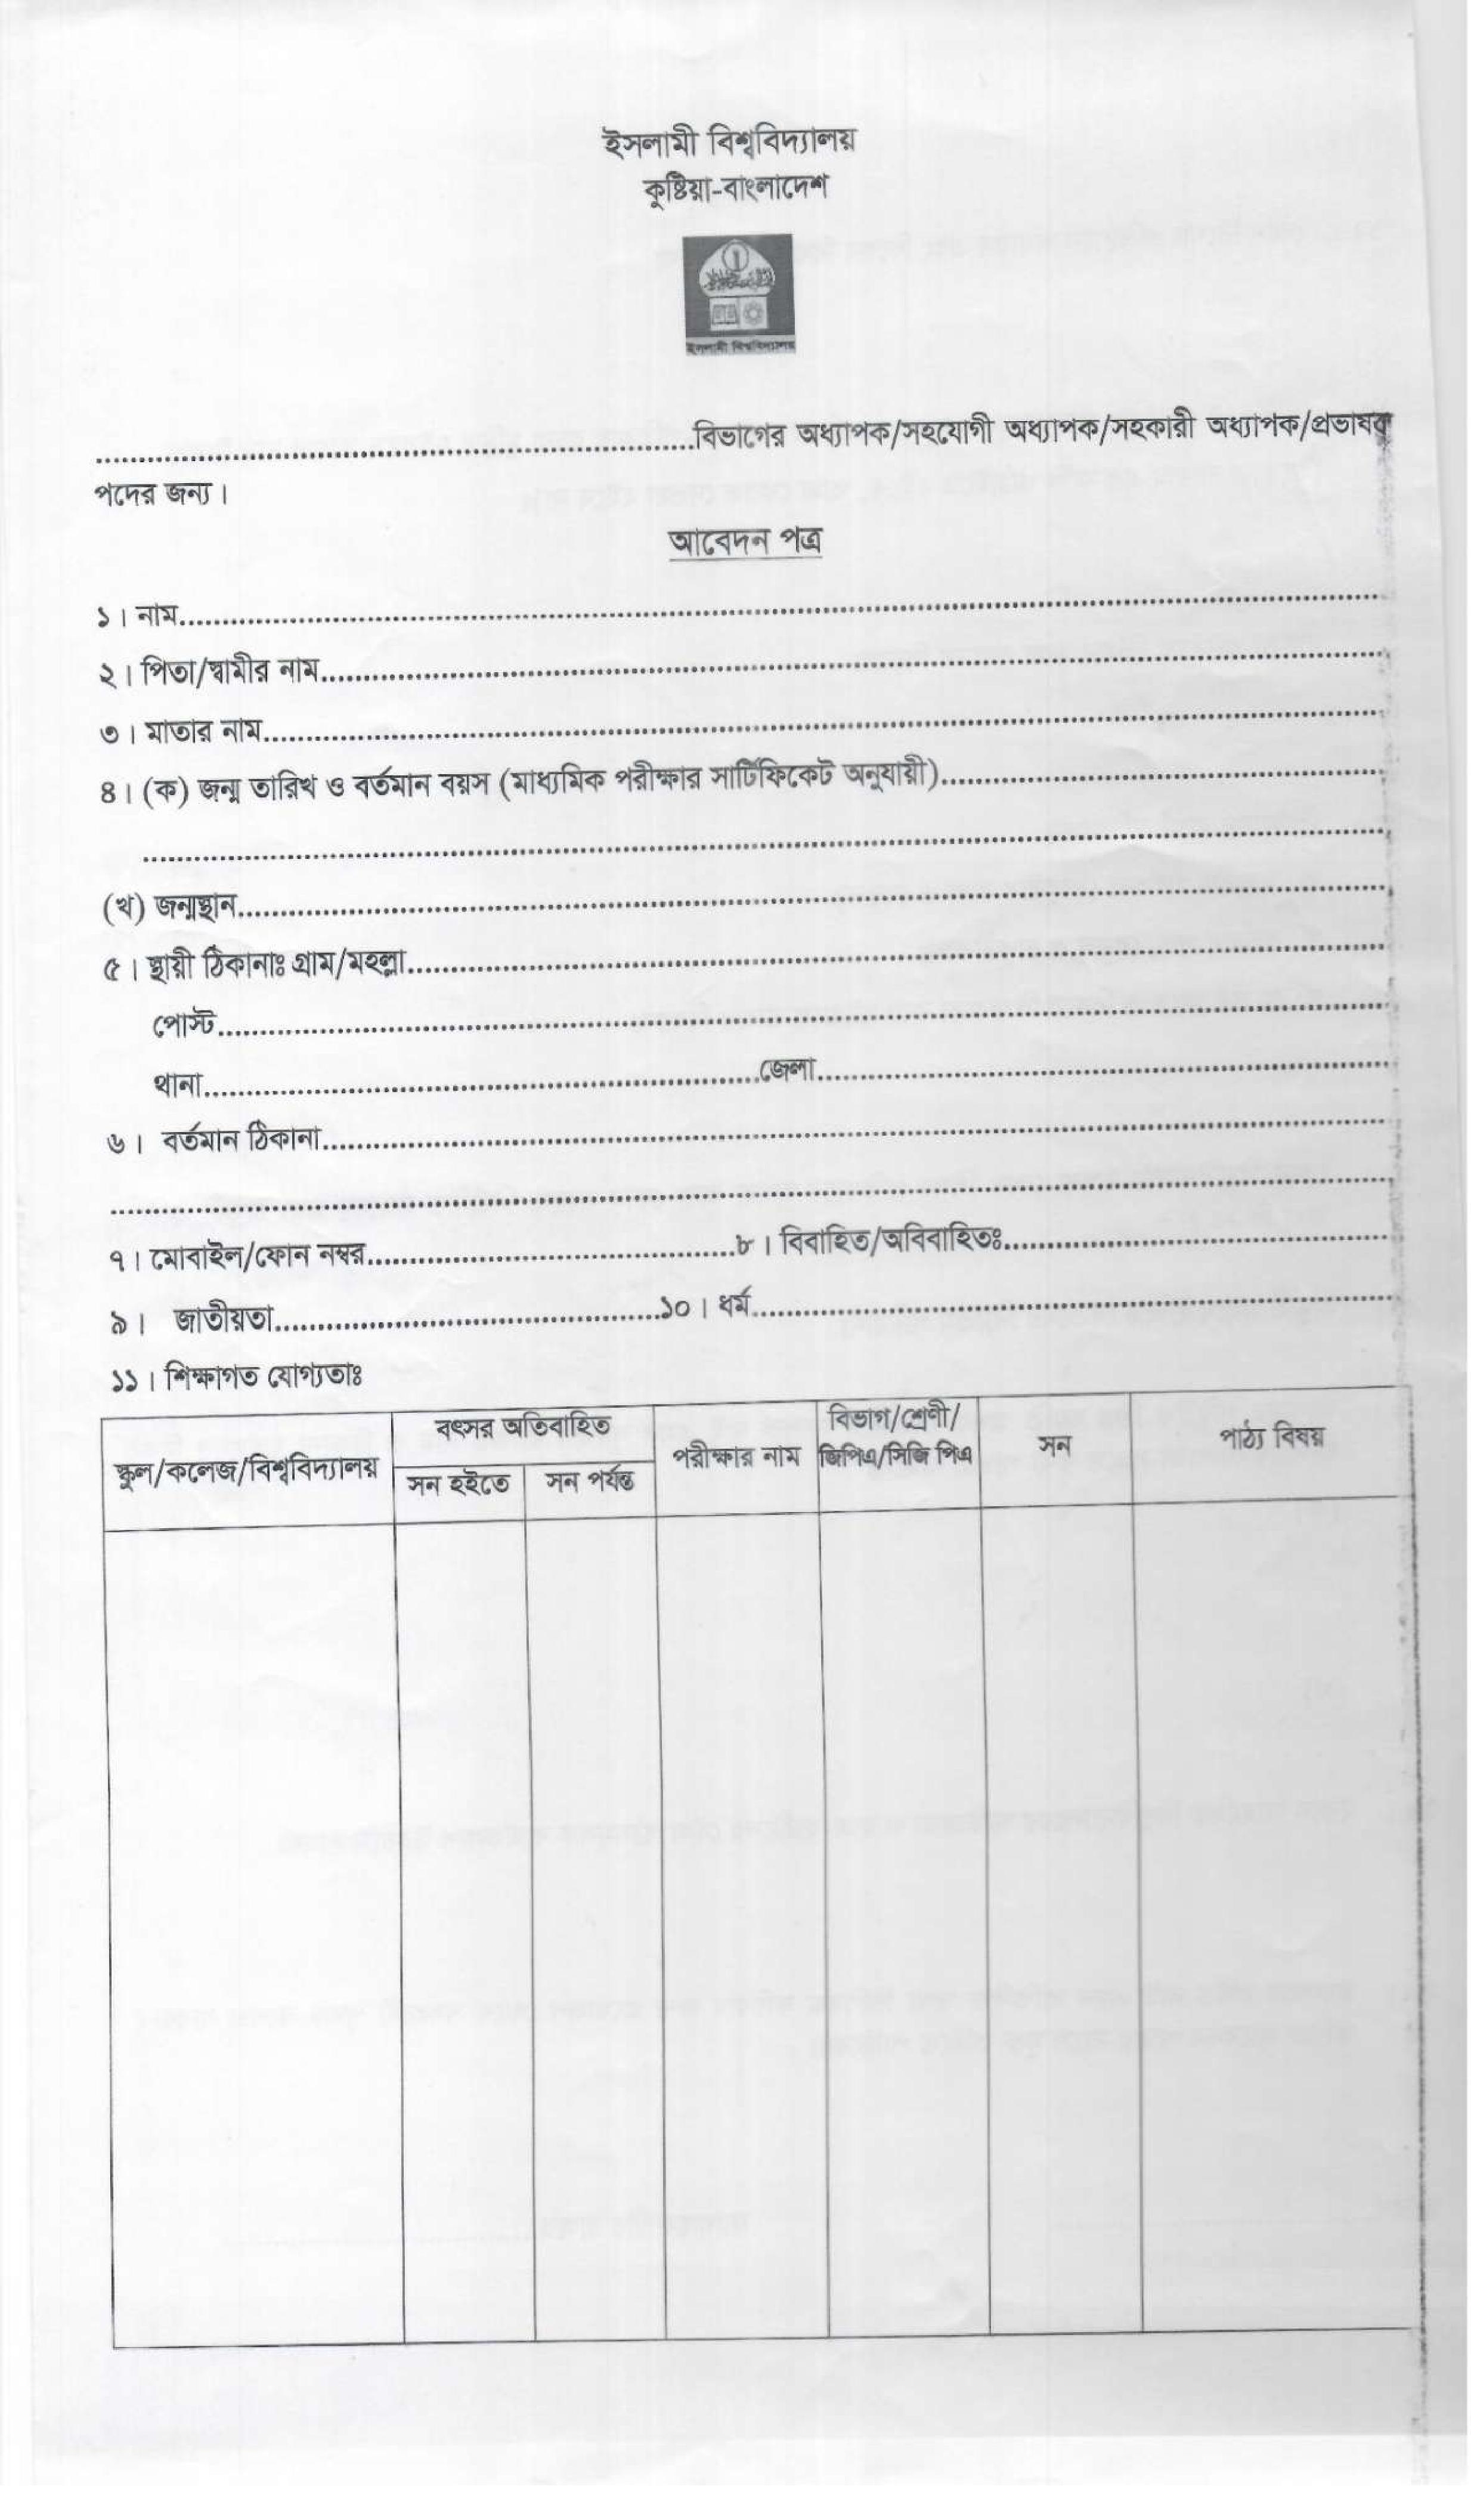 ইসলামী বিশ্ববিদ্যালয়
কুষ্টিয়া-বাংলাদেশ
ইসলামী বিশ্ববিদ্যালয়
....................................................................বিভাগের অধ্যাপক/সহযোগী অধ্যাপক/সহকারী অধ্যাপক/প্রভাষক
পদের জন্য।
আবেদন পত্র
১। নাম....................................................................
২। পিতা/স্বামীর নাম....................................................................
৩। মাতার নাম....................................................................
৪। (ক) জন্ম তারিখ ও বর্তমান বয়স (মাধ্যমিক পরীক্ষার সার্টিফিকেট অনুযায়ী)..................................................
....................................................................
(খ) জন্মস্থান....................................................................
৫। স্থায়ী ঠিকানাঃ গ্রাম/মহল্লা....................................................................
পোস্ট....................................................................
থানা..................................................জেলা..................................................
৬। বর্তমান ঠিকানা....................................................................
....................................................................
৭। মোবাইল/ফোন নম্বর..........................................৮। বিবাহিত/অবিবাহিতঃ..........................................
৯। জাতীয়তা..........................................১০। ধর্ম..................................................
১১। শিক্ষাগত যোগ্যতাঃ
স্কুল/কলেজ/বিশ্ববিদ্যালয়
বৎসর অতিবাহিত
সন হইতে
সন পর্যন্ত
পরীক্ষার নাম
বিভাগ/শ্রেণী/
জিপিএ/সিজি পিএ
সন
পাঠ্য বিষয়